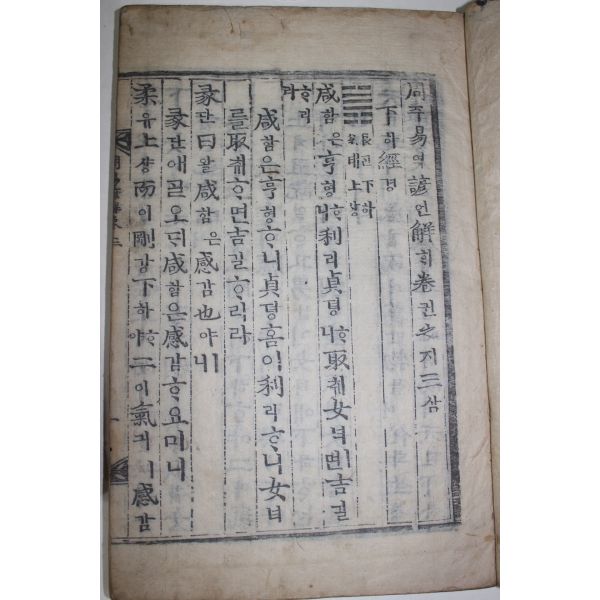 周쥬易역諺언解ᄒᆡ卷권之지三삼
下하經경
艮간下하
兌태上샹
咸함은亨형ᄒᆞ니利리貞뎡ᄒᆞ니取ᄎᆔ女녀면吉길
ᄒᆞ리라
咸함은亨형ᄒᆞ니貞뎡홈이利리ᄒᆞ니女녀
를取ᄎᆔᄒᆞ면吉길ᄒᆞ리라
彖단曰왈咸함은感감也야ㅣ니
彖단애ᄀᆞᆯ오ᄃᆡ咸함은感감ᄒᆞ요미니
柔유上샹而이剛강下하ᄒᆞ야二이氣긔ㅣ感감